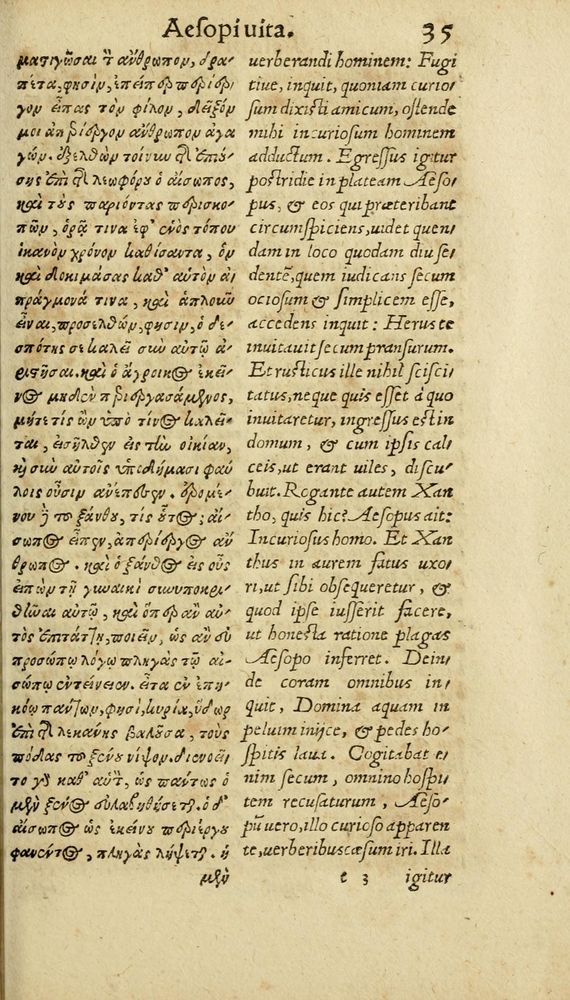 Aesopi uita. 35
ματιγῶσαι τὸν ἄνθρωπον, δρα
πέτα, φησὶν, ἐπείπερ περίερ
γον εἶπας τὸν φίλον, δεῖξόν
μοι ἀπερίεργον ἄνθρωπον ἀγα
γών. ἐξελθὼν τοίνυν τῇ ἐπιέ-
σης ἐπὶ τῆς λεωφόρου ὁ αἴσωπος,
καὶ τοὺς παριόντας περισκο-
πῶν, ὁρᾷ τινα ἐφ' ἑνὸς τόπου
ἱκανὸν χρόνον καθίσαντα, ὃν
καὶ δοκιμάσας καθ' αὑτὸν ἀ-
πράγμονά τινα, καὶ ἁπλοῦν
εἶναι, προσελθὼν, φησὶν, ὁ δε-
σπότης σε καλεῖ σὺν αὐτῷ ἀ-
ριστῆσαι. καὶ ὁ ἄγροικος ἐκεῖ-
νος μηδὲν περιεργασάμενος,
μήτε τίς ὢν ὑπὸ τίνος καλεῖ-
ται, εἰσῆλθεν εἰς τὴν οἰκίαν,
καὶ σὺν αὐτοῖς ὑποδήμασι φαύ
λοις οὖσιν ἀνέπεσεν. ἐρομέ-
νου δὲ τοῦ ξάνθου, τίς οὗτος; αἴ-
σωπος εἶπεν, ἀπερίεργος ἄν
θρωπος. καὶ ὁ ξάνθος εἰς οὖς
εἰπὼν τῇ γυναικὶ συνυποκρι-
θῆναι αὐτῷ, καὶ ὅπερ ἂν αὐ-
τὸς ἐπιτάττῃ, ποιεῖν, ὡς ἂν εὐ
προσώπῳ λόγῳ πληγὰς τῷ αἰ-
σώπῳ ἐντείνειεν. εἶτα ἐν ἐπη-
κόῳ πάντων, φησὶ, κυρία, ὕδωρ
ἐπὶ τῆς λεκάνης βαλοῦσα, τοὺς
πόδας τοῦ ξένου νίψον. διενοεῖ-
το γὰρ καθ' αὑτὸν, ὡς πάντως ὁ
μὲν ξένος ὁ δ'
αἴσωπος ὡς ἐκείνου περιέργου
φανέντος, πληγὰς λήψεται. ἡ
μὲν
uerberandi hominem: Fugi
tiue, inquit, quoniam curio-
sum dixisti amicum, ostende
mihi incuriosum hominem
adductum. Egressus igitur
postridie in plateam Aeso-
pus, & eos qui præteribant
circumspiciens, uidet quen-
dam in loco quodam diu se-
dentē, quem iudicans secum
ociosum & simplicem esse,
accedens inquit: Herus te
inuitauit secum pransurum.
Et rusticus ille nihil scisci-
tatus, neque quis esset à quo
inuitaretur, ingressus est in
domum, & cum ipsis cal-
ceis, ut erant uiles, discu-
buit. Rogante autem Xan
tho, quis hic? Aesopus ait:
Incuriosus homo. Et Xan
thus in aurem fatus uxo-
ri, ut sibi obsequeretur, &
quod ipse iusserit facere,
ut honesta ratione plagas
Aesopo inferret. Dein-
de coram omnibus in-
quit, Domina aquam in
peluim inijce, & pedes ho-
spitis laua. Cogitabat e-
nim secum, omnino hospi-
tem recusaturum, Aeso-
pū uero, illo curioso apparen
te, uerberibus cæsum iri. Illa
e 3 igitur